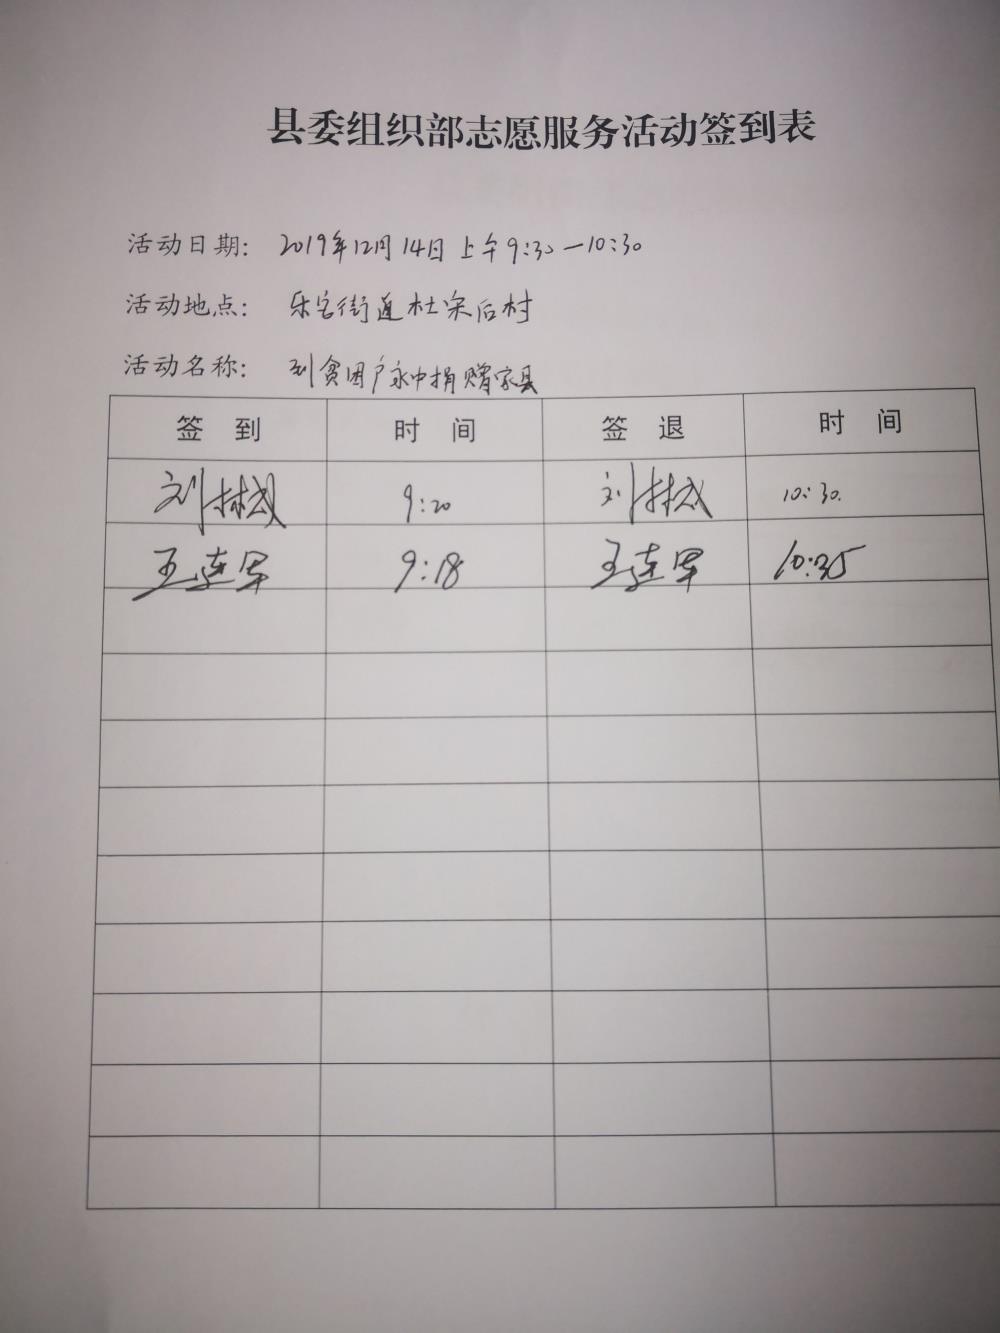 县委组织部志愿服务活动签到表
活动日期： 2019年12月14日上午9:30—10:30
活动地点： 乐安街道杜宋后村
活动名称： 到贫困户家中捐赠家具
签 到 时 间 签 退 时 间
刘林成 9:20 刘林成 10:30.
王连军 9:18 王连军 10:35